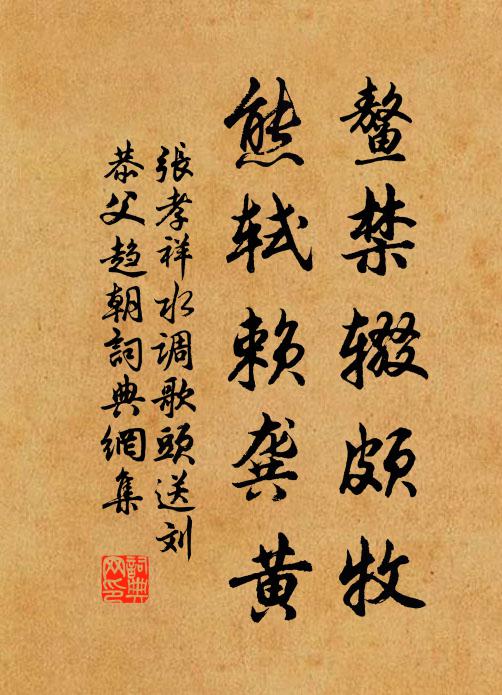 鳌禁辍颇牧
熊轼赖龚黄
張孝祥水调歌頭送刘
恭父趋朝詞典網集
詞典网印